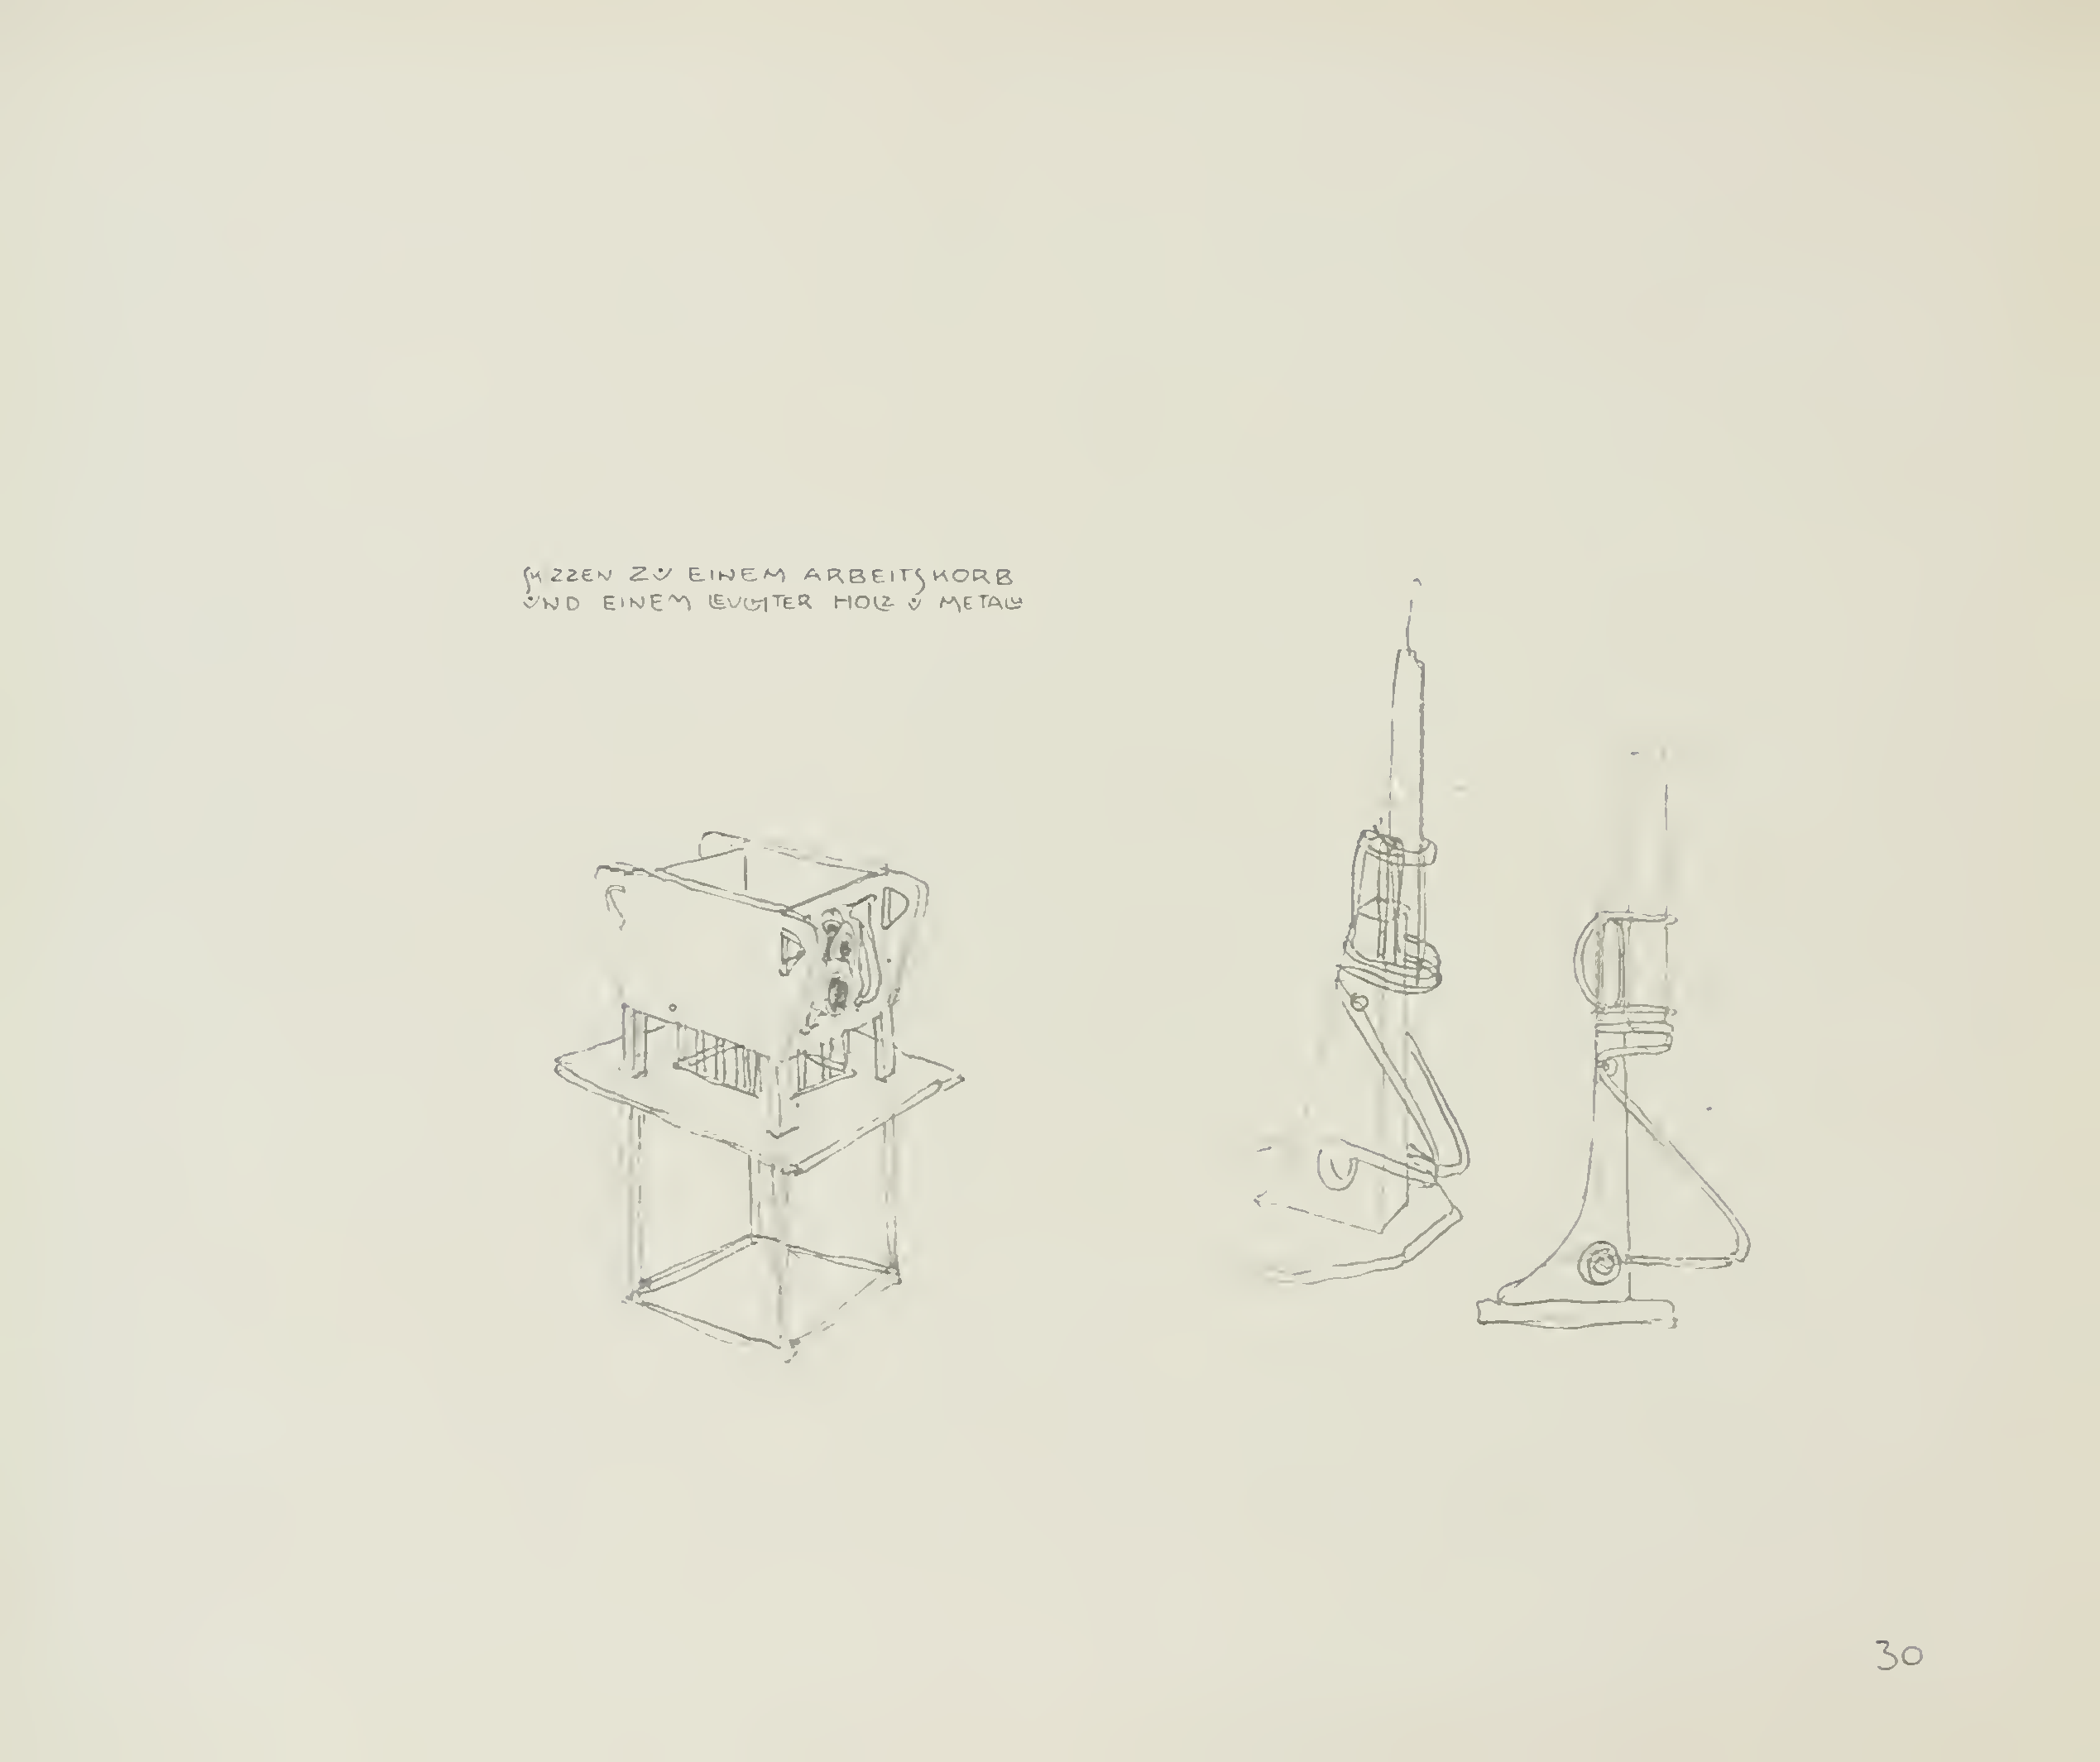 SKIZZEN ZU EINEM ARBEITSKORB
UND EINEM LEUCHTER HOLZ U METALL
30